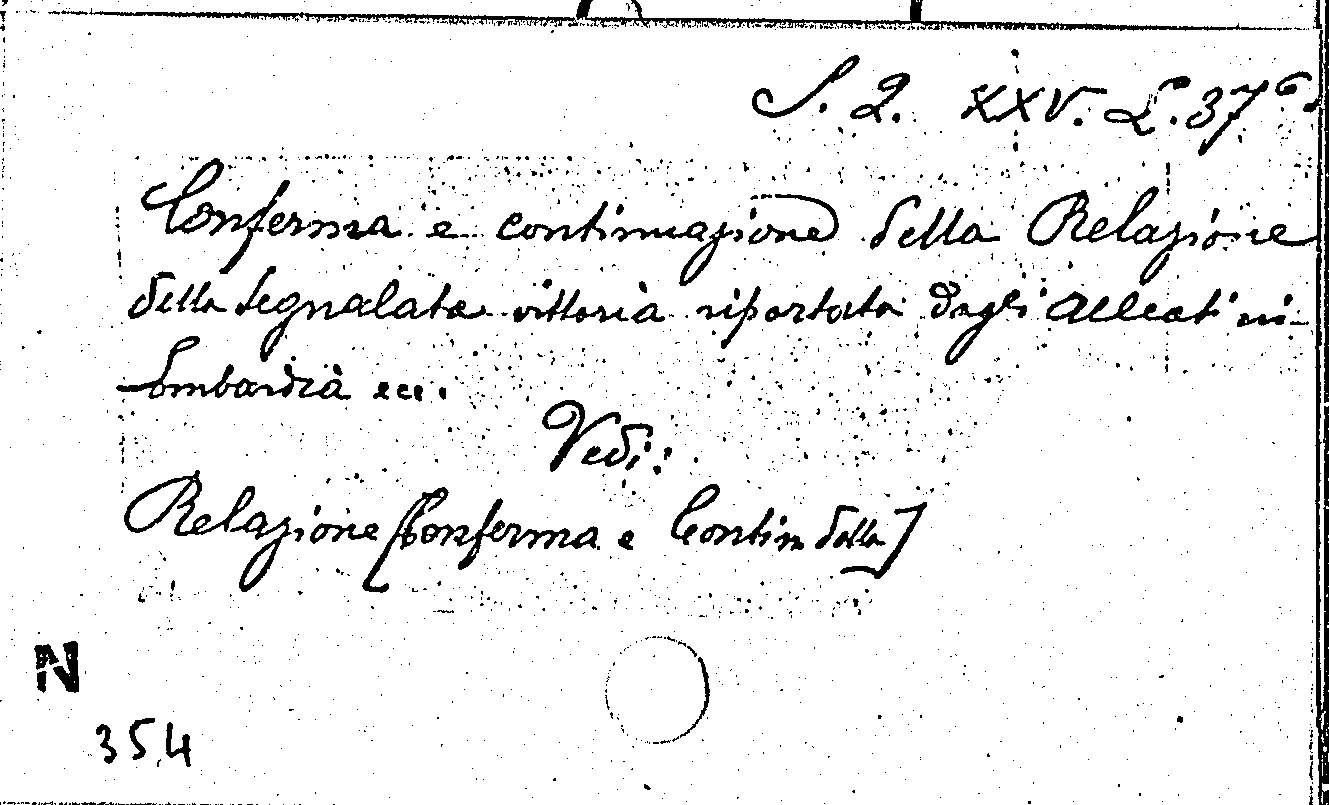 S. 2. XXV. L. 37 6.
Conferma e continuazione della Relazione
della segnalata vittoria riportata dagli Alleati in
Lombardia ecc.
Vedi:
Relazione [Conferma e Contin della]
N
354